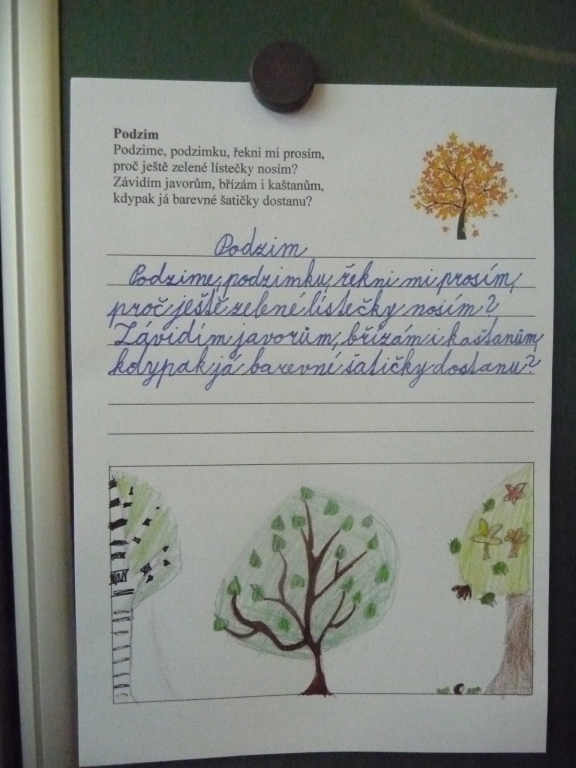 Podzim
Podzime, podzimku, řekni mi prosím,
proč ještě zelené lístečky nosím?
Závidím javorům, břízám i kaštanům,
kdypak já barevné šatičky dostanu?
Podzim
Podzime, podzimku, řekni mi prosím,
proč ještě zelené lístečky nosím?
Závidím javorům, břízám i kaštanům,
kdypak já barevné šatičky dostanu?